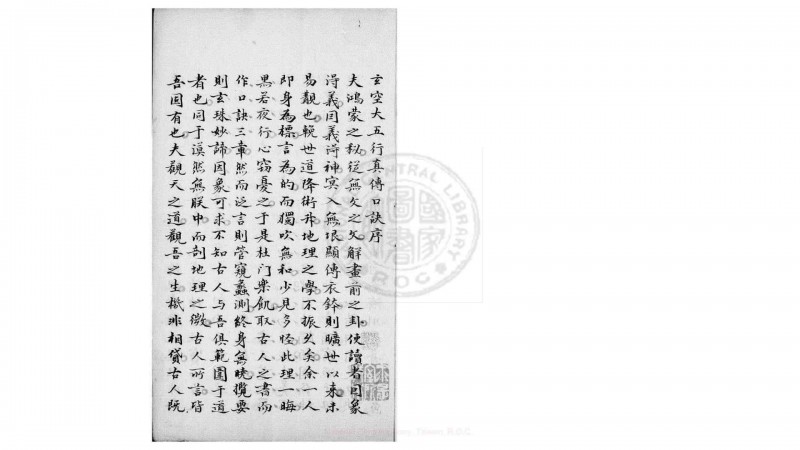 玄空大五行真傳口訣序
夫鴻蒙之秘從無文之文解盡前之卦使讀者因象
淂義因義淂神冥入無垠顯傳衣鉢則曠世以来未
易覩也輓世道降術升地理之學不振久矣余一人
即身為標言為的而獨吹無和少見多怪此理一晦
黑若夜行心竊憂之于是杜门樂飢取古人之書而
作口訣三章然而泛言則管窺蠡測終身無曉攬要
則玄珠妙諦因象可求不知古人与吾俱範圍于道
者也同于漠然無朕中而剖地理之微古人所言皆
吾固有也夫觀天之道觀吾之生機非相貸古人既
CENTRAL LIBRARY
R.O.C.
國家圖書館